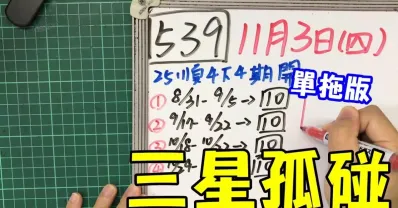 539 11月3日(四)
25順4下4期開
單拖版
① 8/31-9/5→10
② 9/17-9/22→10
③ 10/8-
三星孤碰